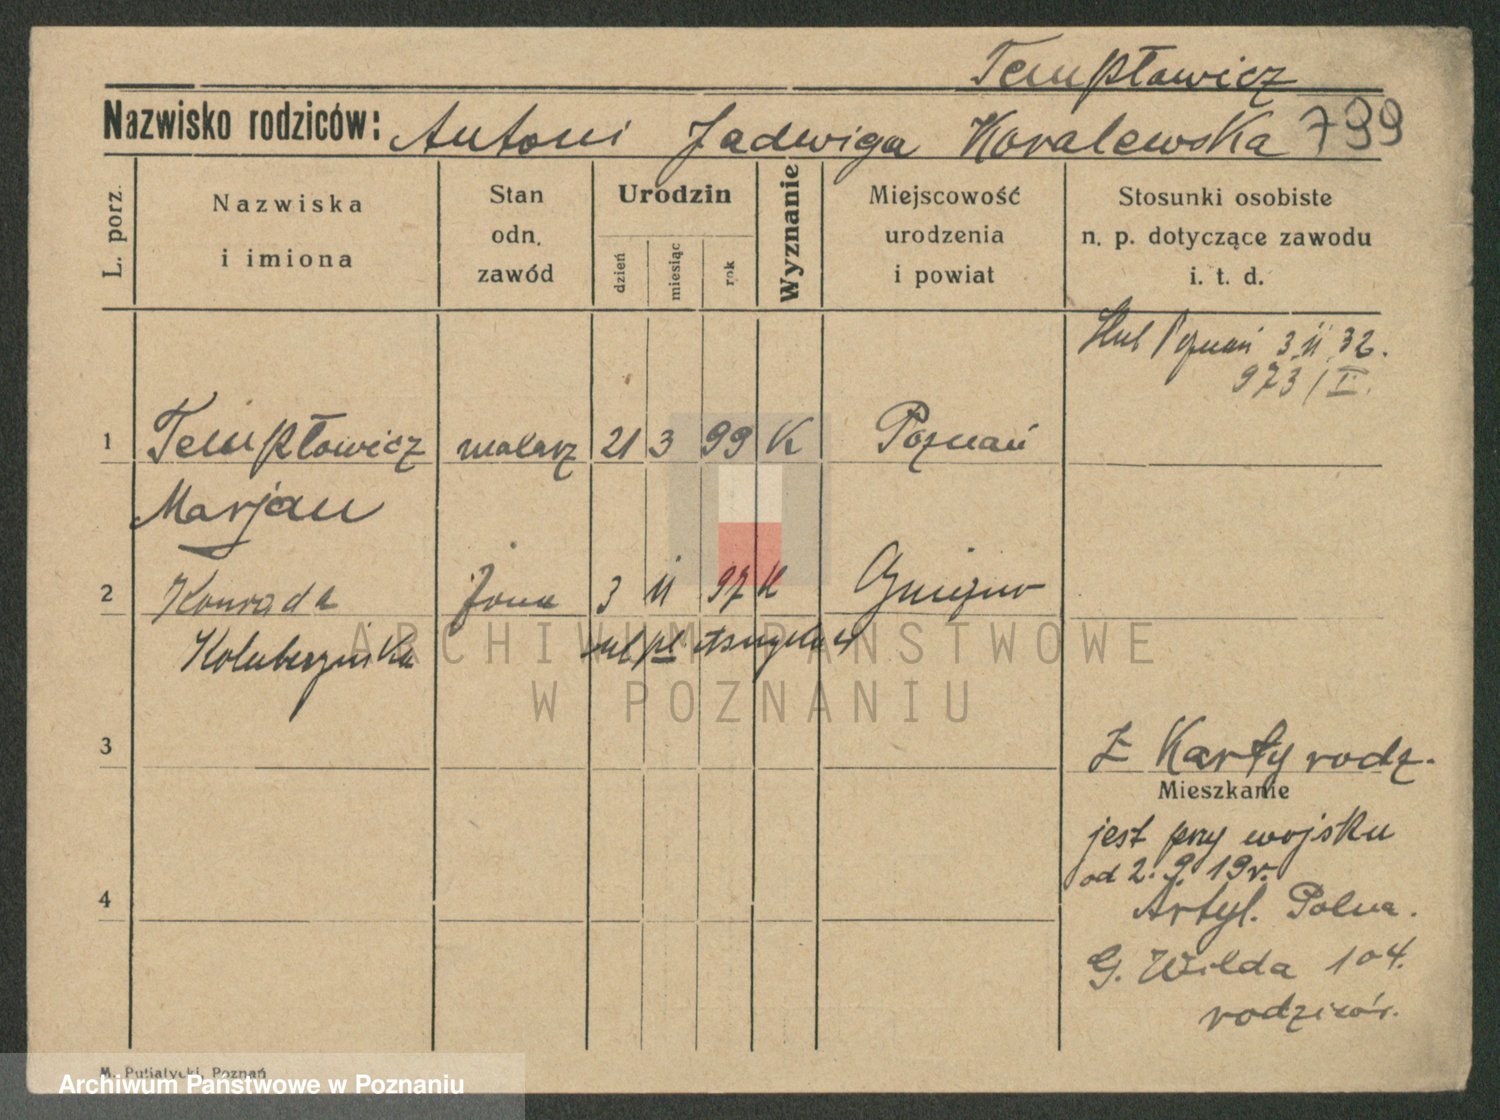 Tempłowicz
Nazwisko rodziców: Antoni Jadwiga Kovalewska 799
L. porz.
Nazwiska
i imiona
Stan
odn.
zawód
Urodzin
dzień
miesiąc
rok
Wyznanie
Miejscowość
urodzenia
i powiat
Stosunki osobiste
n. p. dotyczące zawodu
i. t. d.
Poznań 3 11 32.
973/I.
1 Tempłowicz malarz 21 3 99 K Poznań
Marjan
2 Konrada żona 3 11 97 K Gniezno
Koluberzińska
ARCHIWUM PAŃSTWOWE
W POZNANIU
3
Z Karty rodz.
Mieszkanie
jest przy wojsku
od 2. 9. 19 r.
4
Artyl. Polna.
G. Wilda 104.
rodziców.
M. Putiatycki, Poznań
Archiwum Państwowe w Poznaniu